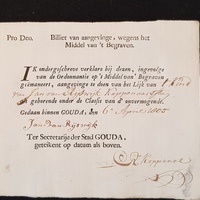 Pro Deo. Billet van aangevinge, wegens het
Middel van 't Begraven.
IK ondergeschreve verklare bij dezen, ingevolge
van de Ordonnantie op 't Middel van 't Begraven
geëmaneert, aangevinge te doen van het Lijk van 't Kind
van Jan van Rijswijk
als gehorende onder de Classis van d'onvermogende.
Gedaan binnen GOUDA, den 6 April 1805
Jan Van Rijswijk
Ter Secretarije der Stad GOUDA,
geteikent op datum als boven.